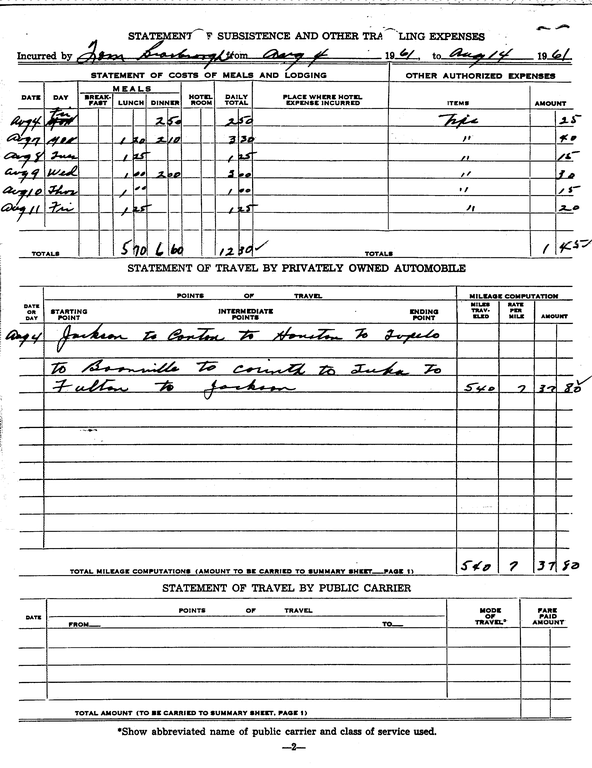 STATEMENT OF SUBSISTENCE AND OTHER TRA LING EXPENSES
Incurred by Tom Scarbrough from Aug 4 1961, to Aug 14 1961
STATEMENT OF COSTS OF MEALS AND LODGING OTHER AUTHORIZED EXPENSES
MEALS
DATE DAY BREAK-FAST LUNCH DINNER HOTEL ROOM DAILY TOTAL PLACE WHERE HOTEL EXPENSE INCURRED ITEMS AMOUNT
Aug 4 Fri 2 50 2 50 Tips 25
Aug 7 Mon 1 20 2 10 3 30 " 40
Aug 8 Tues 1 25 1 25 " 15
Aug 9 Wed 1 00 2 00 3 00 " 30
Aug 10 Thur 1 00 1 00 " 15
Aug 11 Fri 1 25 1 25 " 20
TOTALS 5 70 6 60 12 30 TOTALS 1 45
STATEMENT OF TRAVEL BY PRIVATELY OWNED AUTOMOBILE
POINTS OF TRAVEL MILEAGE COMPUTATION
DATE OR DAY STARTING POINT INTERMEDIATE POINTS ENDING POINT MILES TRAV-ELED RATE PER MILE AMOUNT
Aug 4 Jackson to Canton to Houston to Tupelo
to Boonville to Corinth to Iuka to
Fulton to Jackson 540 7 37 80
TOTAL MILEAGE COMPUTATIONS (AMOUNT TO BE CARRIED TO SUMMARY SHEET PAGE 1) 540 7 37 80
STATEMENT OF TRAVEL BY PUBLIC CARRIER
DATE POINTS OF TRAVEL MODE OF TRAVEL* FARE PAID AMOUNT
FROM TO
TOTAL AMOUNT (TO BE CARRIED TO SUMMARY SHEET, PAGE 1)
*Show abbreviated name of public carrier and class of service used.
—2—